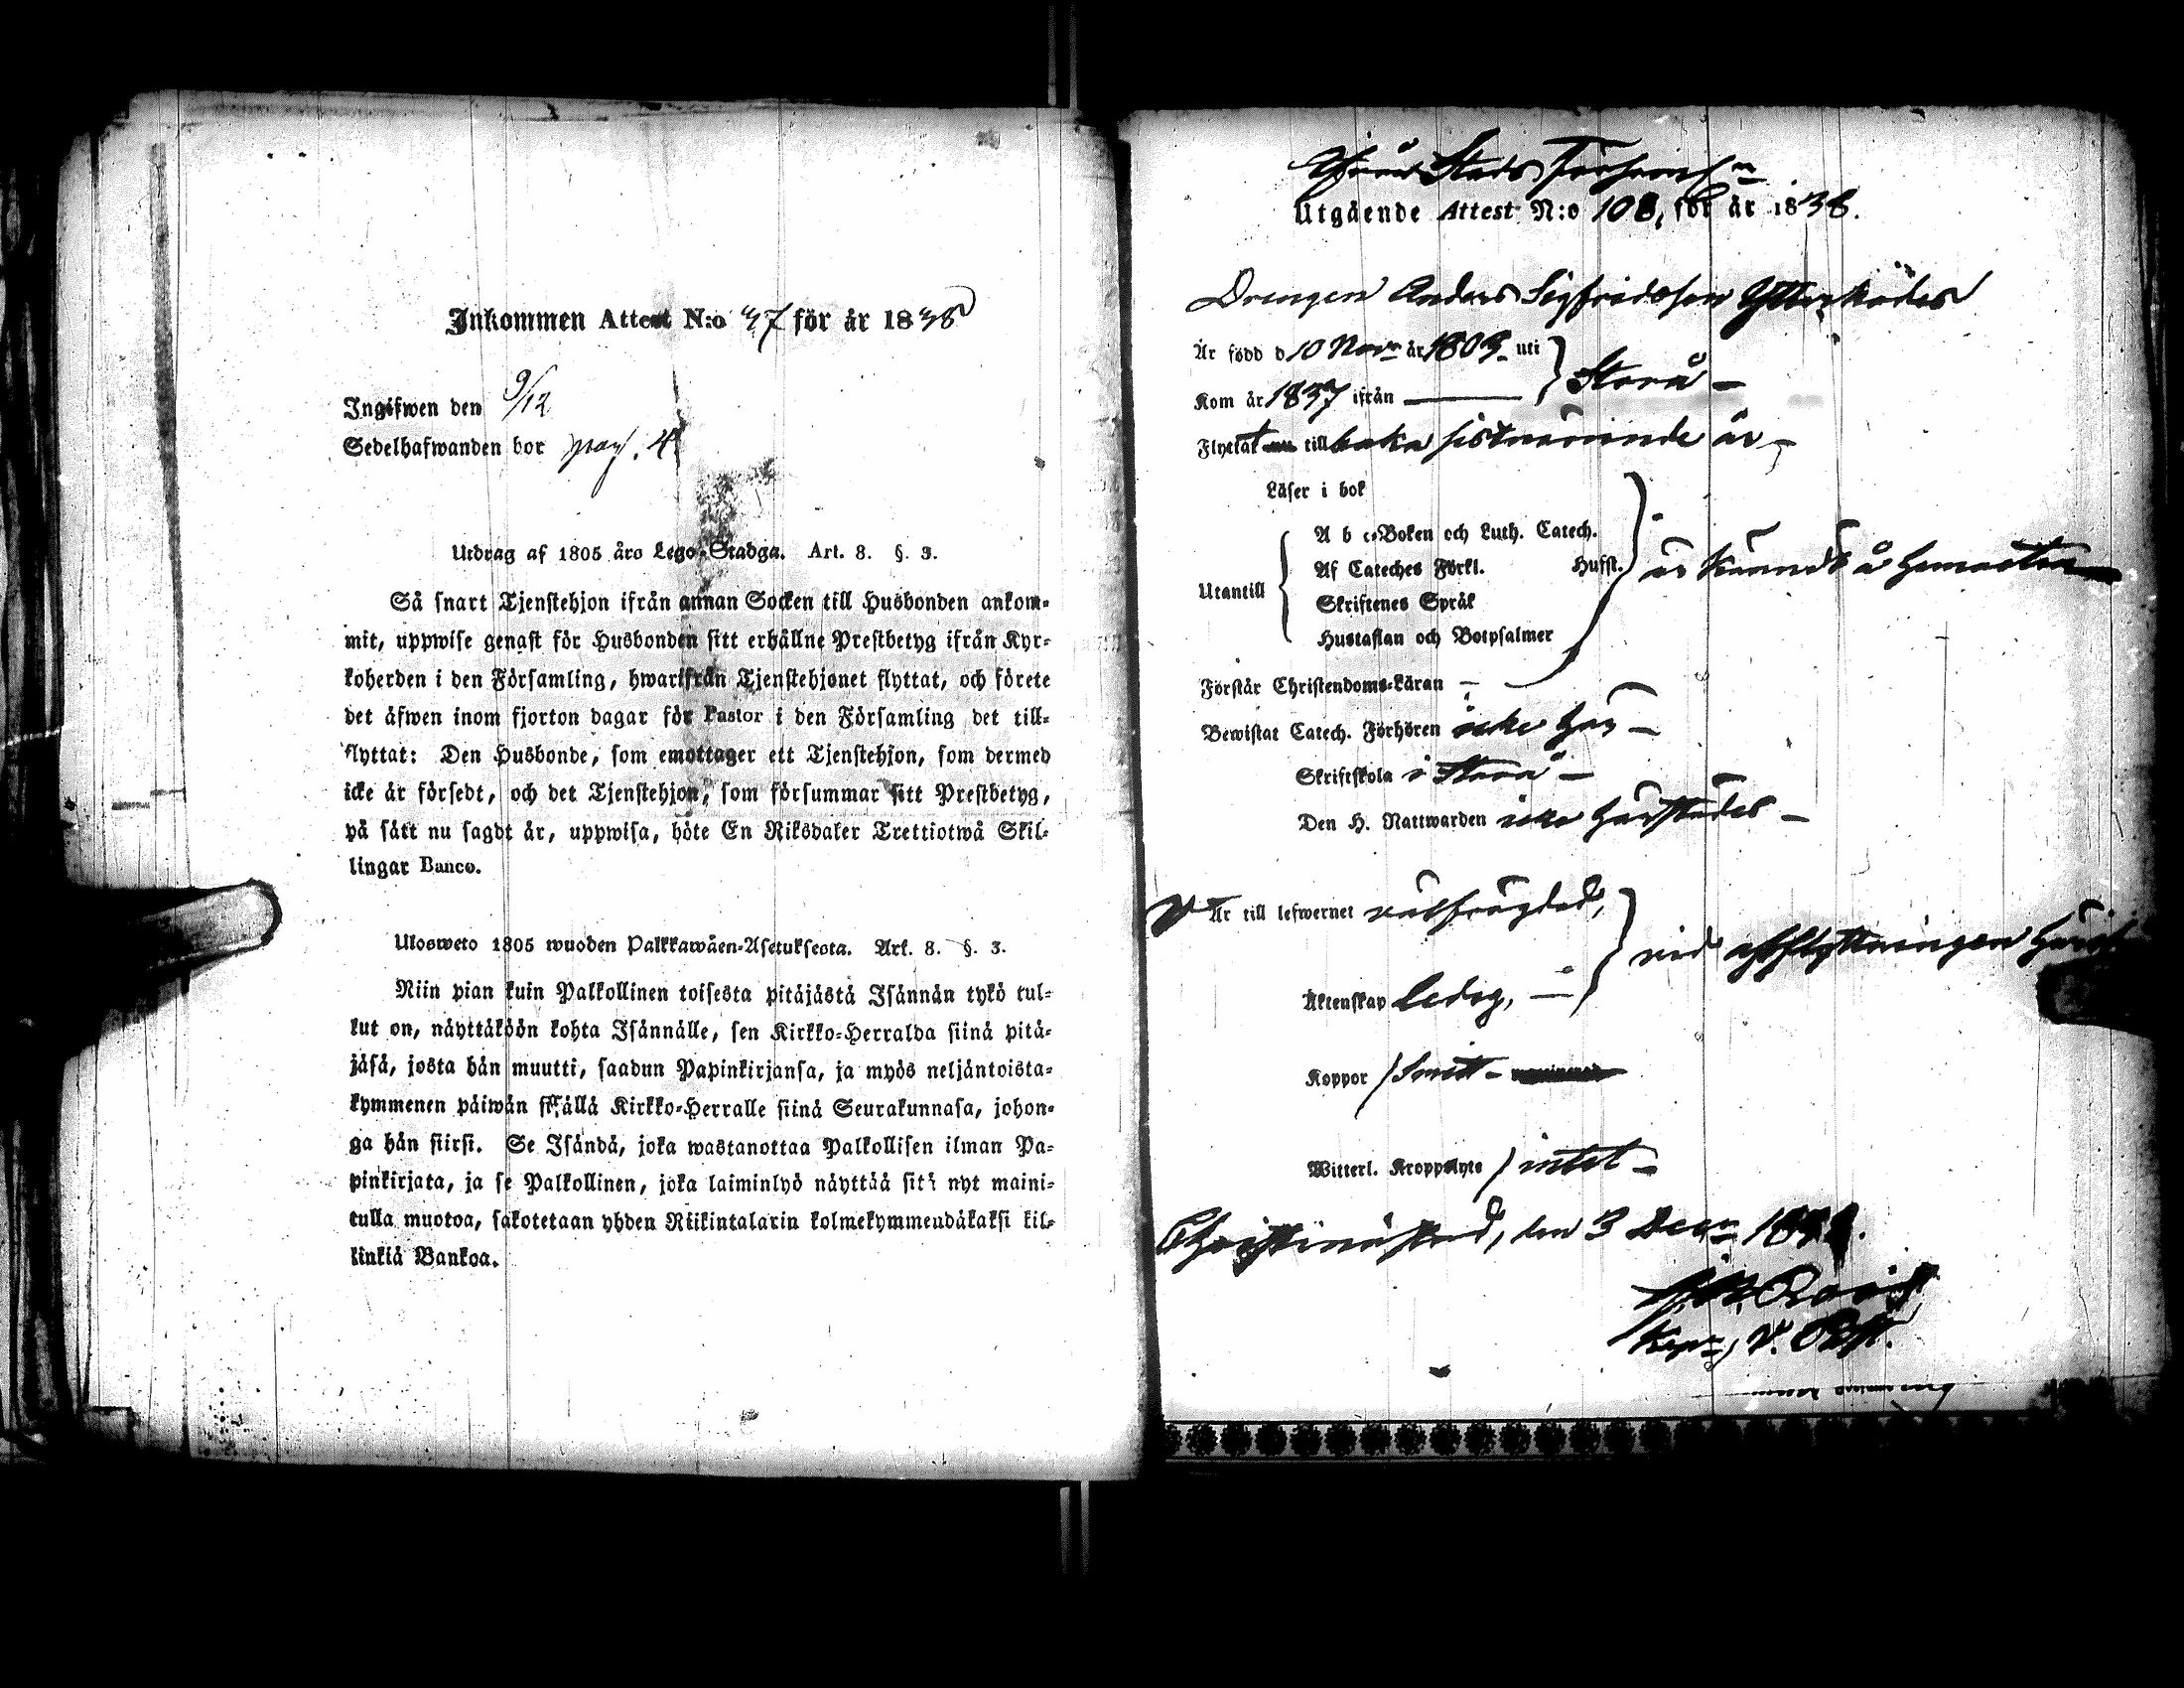 Inkommen Attest N:o 37 för år 1838
Ingifwen den 9/12
Sedelhafwanden bor pag. 4
Utdrag af 1805 års Lego-Stadga. Art. 8. §. 3.
Så snart Tjenstehjon ifrån annan Socken till Husbonden ankom-
mit, uppwise genast för Husbonden sitt erhållne Prestbetyg ifrån Kyr-
koherden i den Församling, hwarifrån Tjenstehjonet flyttat, och förete
det äfwen inom fjorton dagar för Pastor i den Församling det till-
flyttat: Den Husbonde, som emottager ett Tjenstehjon, som dermed
icke är försedt, och det Tjenstehjon, som försummar sitt Prestbetyg,
på sätt nu sagdt är, uppwisa, böte En Riksdaler Trettiotwå Skil-
lingar Banco.
Ulosweto 1805 wuoden Palkkawäen-Asetuksesta. Art. 8. §. 3.
Niin pian kuin Palkollinen toisesta pitäjästä Isännän tykö tul-
kut on, näyttäköön kohta Isännälle, sen Kirkko-Herralda siinä pitä-
jäsä, josta hän muutti, saadun Papinkirjansa, ja myös neljäntoista-
kymmenen päiwän sisällä Kirkko-Herralle siinä Seurakunnasa, johon-
ga hän siirsi. Se Isändä, joka wastanottaa Palkollisen ilman Pa-
pinkirjata, ja se Palkollinen, joka laiminlyö näyttää sitä nyt maini-
tulla muotoa, sakotetaan yhden Riikintalarin kolmekymmendäkaksi kil-
linkiä Bankoa.
Ifrån Stads Församl:n
Utgående Attest N:o 108, för år 1838.
Drengen Anders Sigfridsson Ytterködes
Är född d 10 Nov:r år 1803 uti
Kom år 1837 ifrån Storå
Flyttat till baka sistnämnde år
Läser i bok
Utantill
A b c-Boken och Luth. Catech.
Af Cateches Förkl. Hufst.
Skriftenes Språk
Hustaflan och Botpsalmer
är kändt å hemorten
Förstår Christendoms-Läran
Bewistat Catech. Förhören icke här
Skriftskola i Storå
Den H. Nattwarden icke härstädes
Är till lefwernet välfrägdad,
vid afflyttningen härifr.
Äktenskap ledig,
Koppor
Witterl. Kroppslyte intet
Christinæstad, den 3 Dec:r 1838.
V. Past.